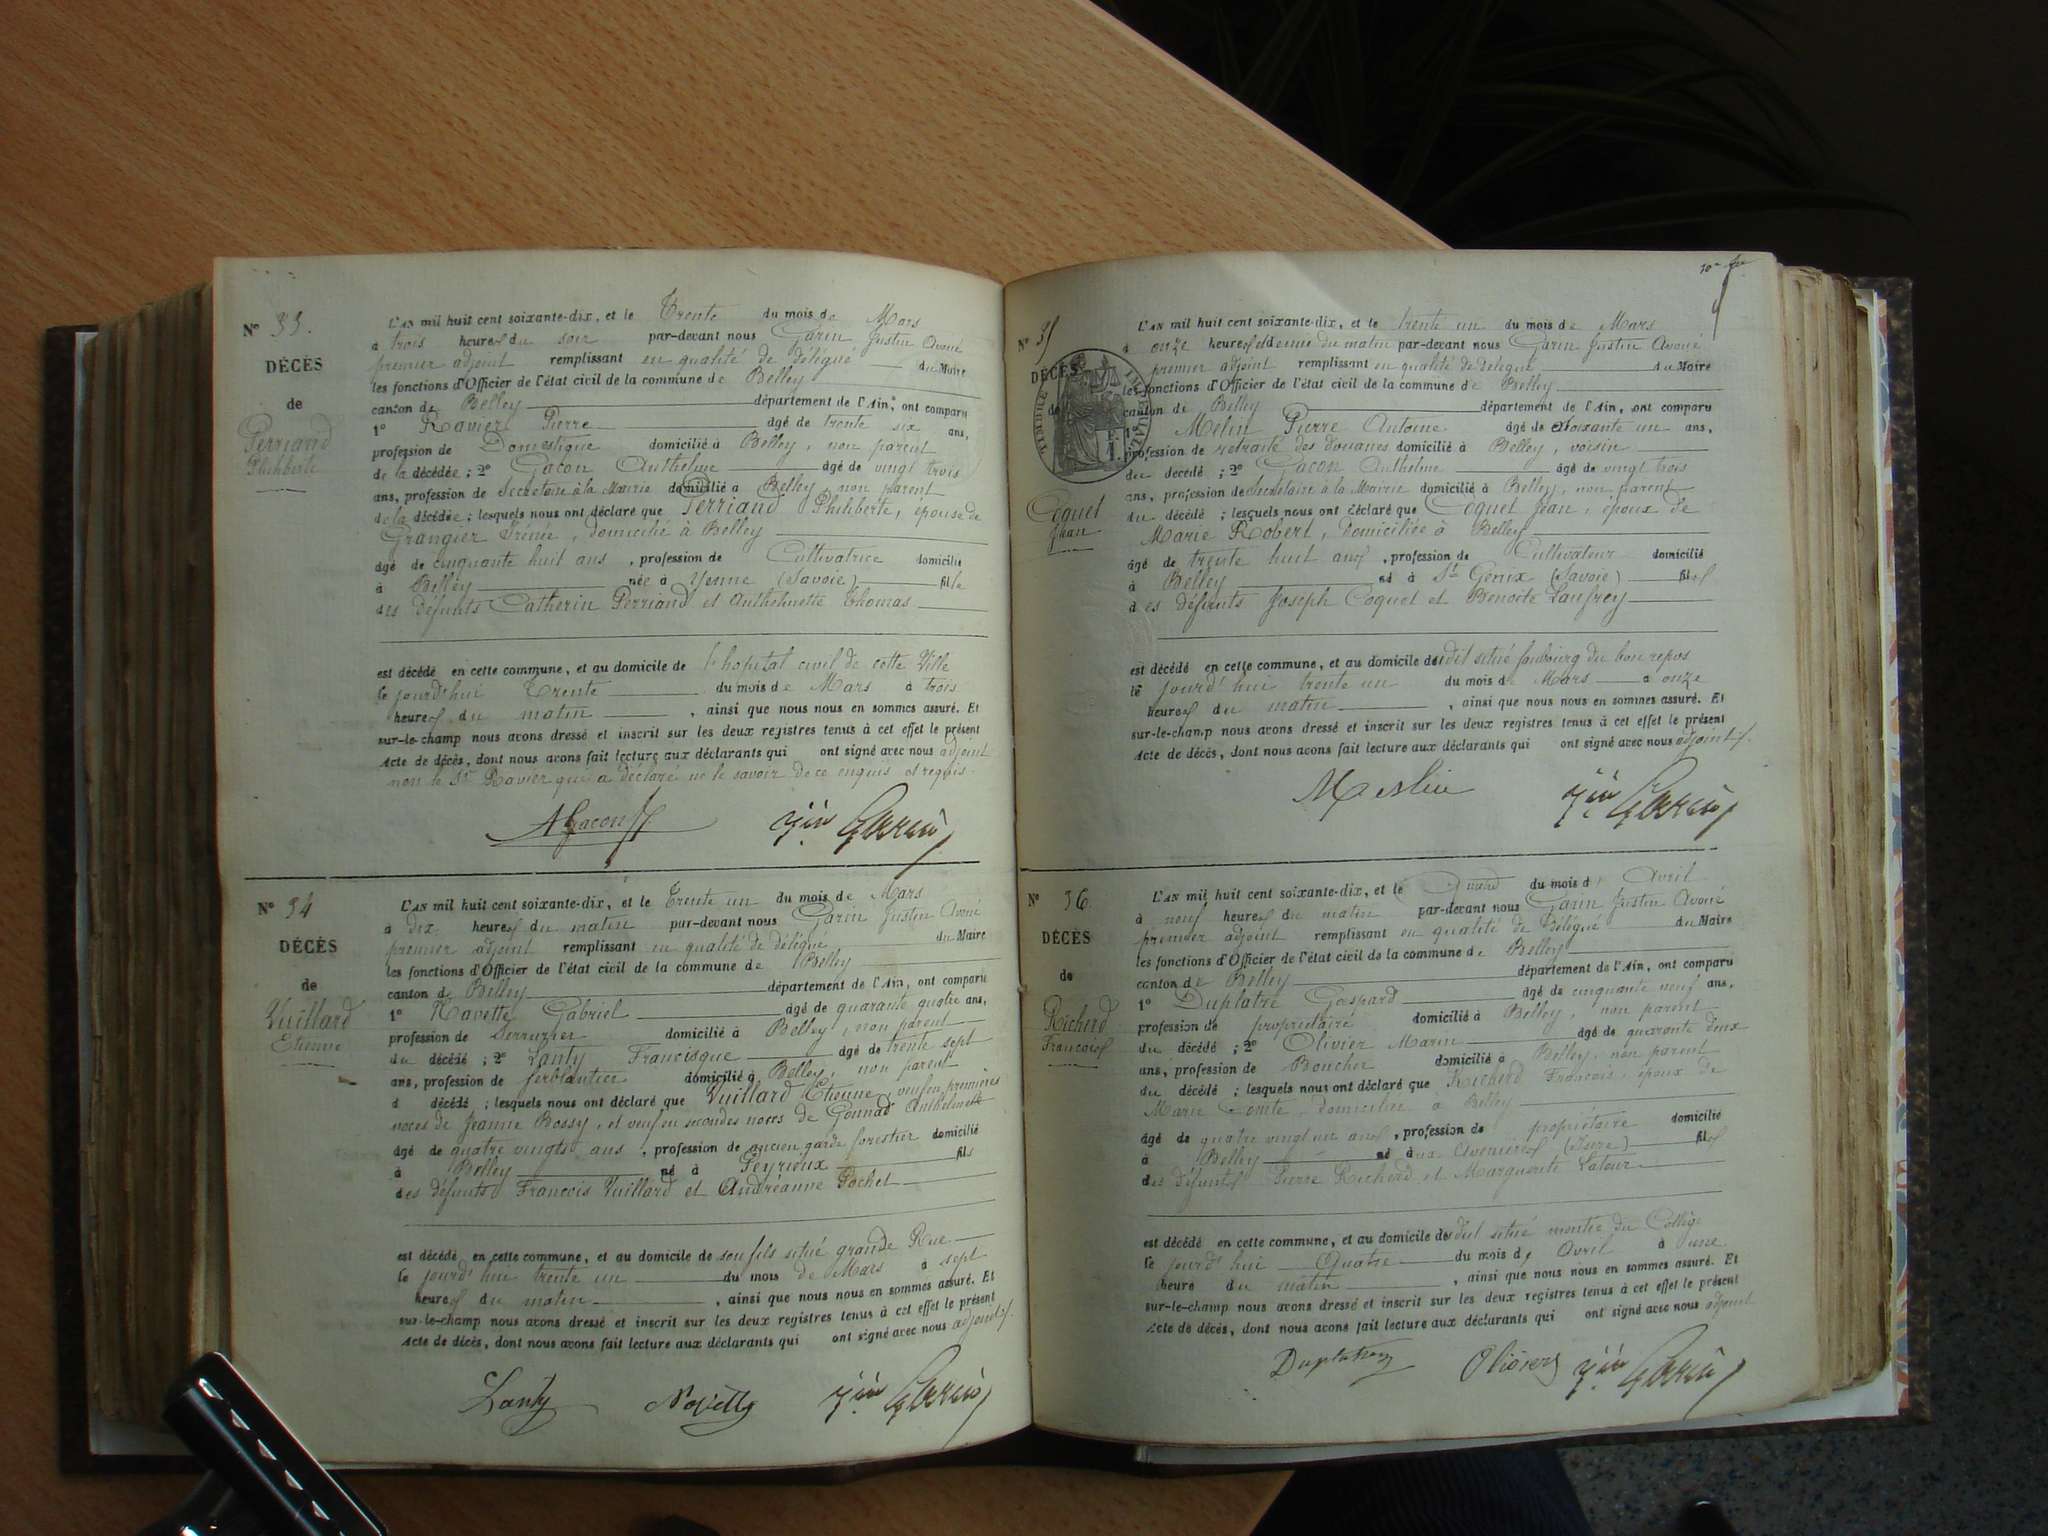 N° 33.
DÉCÈS
de
Perriand
Philiberte
L'AN mil huit cent soixante-dix, et le Trente du mois de Mars
à trois heures du soir par-devant nous Garin Justin Avoué
premier adjoint remplissant en qualité de délégué du Maire
les fonctions d'Officier de l'état civil de la commune de Belley
canton de Belley département de l'Ain, ont comparu
1° Ravier Pierre âgé de trente six ans,
profession de Domestique domicilié à Belley, non parent
de la décédée ; 2° Gacon Anthelme âgé de vingt trois
ans, profession de Secrétaire à la Mairie domicilié à Belley, non parent
de la décédée ; lesquels nous ont déclaré que Perriand Philiberte, épouse de
Grangier Irénée, domicilié à Belley
âgé de cinquante huit ans, profession de Cultivatrice domicilié
à Belley née à Yenne (Savoie) fille
des défunts Catherin Perriand et Anthelmette Thomas
est décédé en cette commune, et au domicile de l'hopital civil de cette Ville
le jourd'hui Trente du mois de Mars à trois
heures du matin, ainsi que nous nous en sommes assuré. Et
sur-le-champ nous avons dressé et inscrit sur les deux registres tenus à cet effet le présent
Acte de décès, dont nous avons fait lecture aux déclarants qui ont signé avec nous adjoint
non le Sr Ravier qui a déclaré ne le savoir de ce enquis et requis.
AGacon Jin Garin
N° 34
DÉCÈS
de
Vuillard
Etienne
L'AN mil huit cent soixante-dix, et le Trente un du mois de Mars
à dix heures du matin par-devant nous Garin Justin Avoué
premier adjoint remplissant en qualité de délégué du Maire
les fonctions d'Officier de l'état civil de la commune de Belley
canton de Belley département de l'Ain, ont comparu
1° Navette Gabriel âgé de quarante quatre ans,
profession de Serrurier domicilié à Belley, non parent
du décédé ; 2° Lanty Francisque âgé de trente sept
ans, profession de ferblantier domicilié à Belley, non parent
d décédé ; lesquels nous ont déclaré que Vuillard Etienne, veuf en premières
noces de Jeanne Bossy, et veuf en secondes noces de Gonnad Anthelmette
âgé de quatre vingts ans, profession de ancien garde forestier domicilié
à Belley né à Peyrieux fils
des défunts François Vuillard et Andréanne Pochet
est décédé en cette commune, et au domicile de son fils situé grande Rue
le jourd'hui trente un du mois de Mars à sept
heures du matin, ainsi que nous nous en sommes assuré. Et
sur-le-champ nous avons dressé et inscrit sur les deux registres tenus à cet effet le présent
Acte de décès, dont nous avons fait lecture aux déclarants qui ont signé avec nous adjoint
Lanty Navette Jin Garin
N° 35
DÉCÈS
de
TIMBRE IMPÉRIAL
Coquet
Jean
L'AN mil huit cent soixante-dix, et le trente un du mois de Mars
à onze heures et demie du matin par-devant nous Garin Justin Avoué
premier adjoint remplissant en qualité de délégué du Maire
les fonctions d'Officier de l'état civil de la commune de Belley
canton de Belley département de l'Ain, ont comparu
1° Melin Pierre Antoine âgé de soixante un ans,
profession de retraité des douanes domicilié à Belley, voisin
du décédé ; 2° Gacon Anthelme âgé de vingt trois
ans, profession de Secrétaire à la Mairie domicilié à Belley, non parent
du décédé ; lesquels nous ont déclaré que Coquet Jean, époux de
Marie Robert, domiciliée à Belley
âgé de trente huit ans, profession de Cultivateur domicilié
à Belley né à St Genix (Savoie) fils
des défunts Joseph Coquet et Benoite Laufrey
est décédé en cette commune, et au domicile dudit situé faubourg du bon repos
le jourd'hui trente un du mois de Mars à onze
heures du matin, ainsi que nous nous en sommes assuré. Et
sur-le-champ nous avons dressé et inscrit sur les deux registres tenus à cet effet le présent
Acte de décès, dont nous avons fait lecture aux déclarants qui ont signé avec nous adjoint
Meslin Jin Garin
N° 36.
DÉCÈS
de
Richerd
François
L'AN mil huit cent soixante-dix, et le Quatre du mois d'Avril
à neuf heures du matin par-devant nous Garin Justin Avoué
premier adjoint remplissant en qualité de Délégué du Maire
les fonctions d'Officier de l'état civil de la commune de Belley
canton de Belley département de l'Ain, ont comparu
1° Duplatre Gaspard âgé de cinquante neuf ans,
profession de propriétaire domicilié à Belley, non parent
du décédé ; 2° Olivier Marin âgé de quarante deux
ans, profession de Boucher domicilié à Belley, non parent
du décédé ; lesquels nous ont déclaré que Richerd François, époux de
Marie Comte, domiciliée à Belley
âgé de quatre vingt un ans, profession de propriétaire domicilié
à Belley né aux Avenières (Isère) fils
des défunts Pierre Richerd et Marguerite Latour
est décédé en cette commune, et au domicile dudit situé montée du Collège
le jourd'hui Quatre du mois d'Avril à une
heure du matin, ainsi que nous nous en sommes assuré. Et
sur-le-champ nous avons dressé et inscrit sur les deux registres tenus à cet effet le présent
Acte de décès, dont nous avons fait lecture aux déclarants qui ont signé avec nous adjoint
Duplatre Olivier Jin Garin